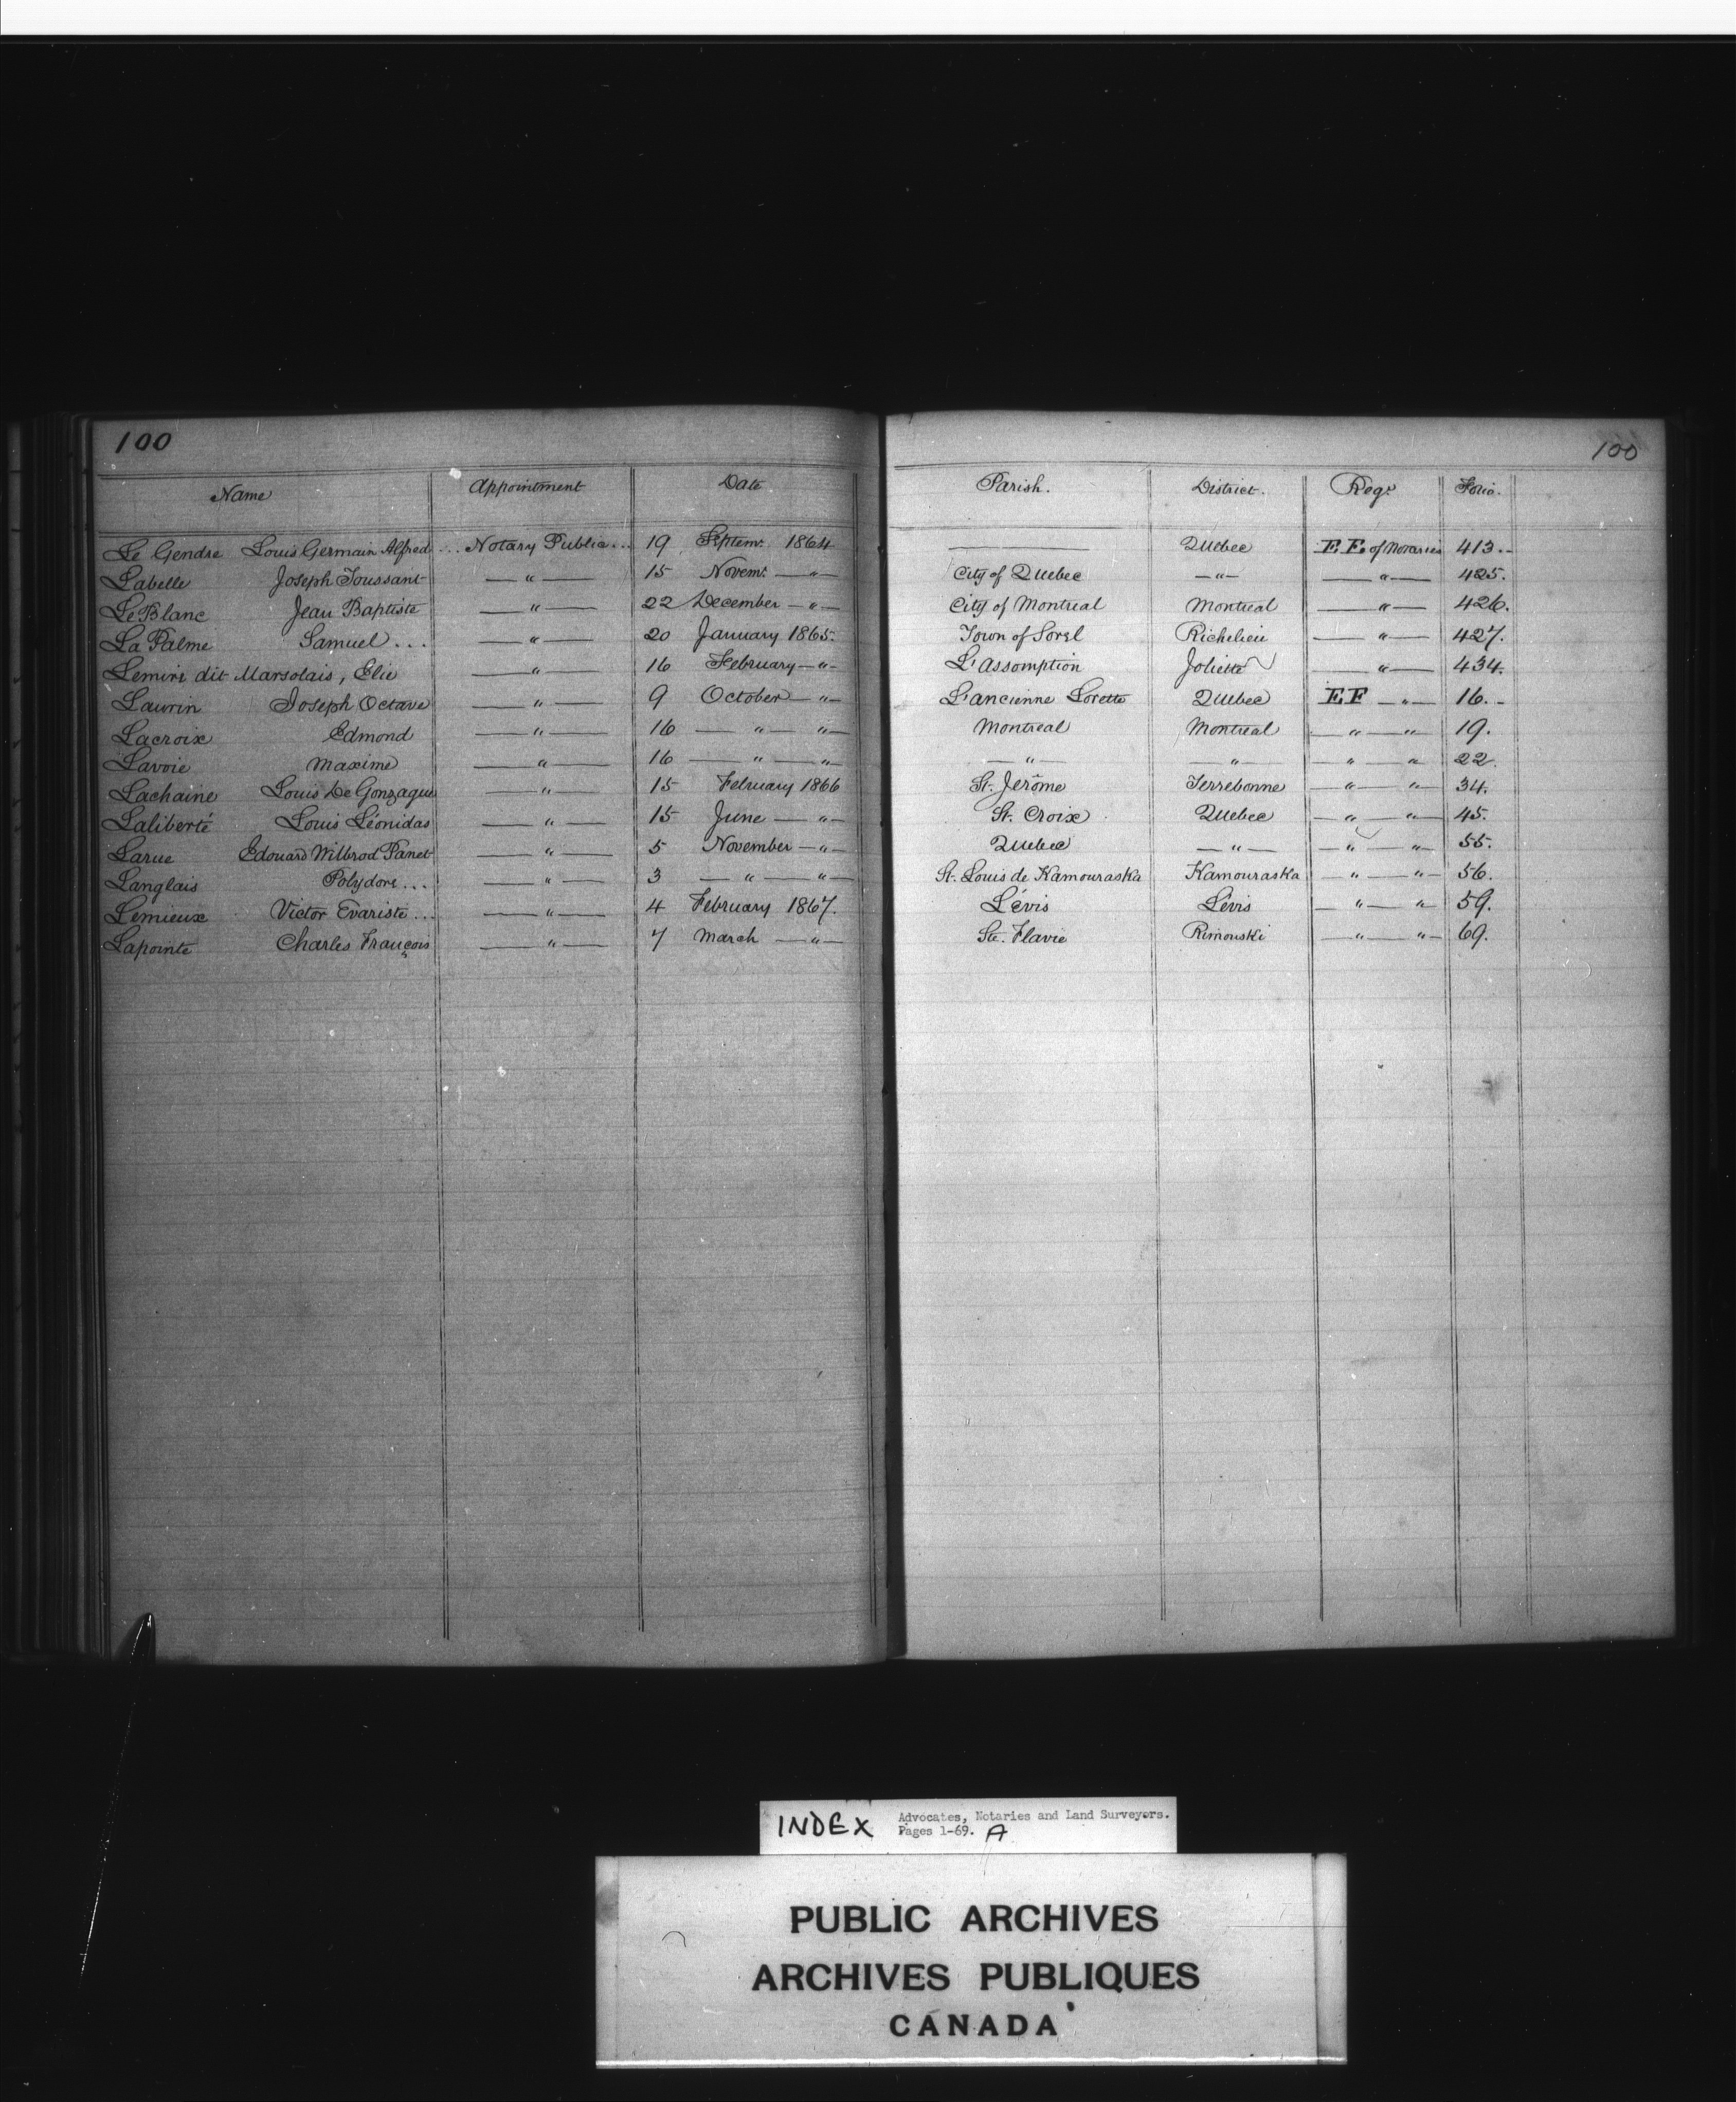 100 100
Name Appointment Date Parish. District. Regr. Folio.
Le Gendre Louis Germain Alfred ... Notary Public ... 19 Septemr. 1864 — Quebec E E. of Notaries 413.-
Labelle Joseph Toussant —"— 15 Novemr. —"— City of Quebec —"— —"— 425.
Le Blanc Jean Baptiste —"— 22 December —"— City of Montreal Montreal —"— 426.
La Palme Samuel ... —"— 20 January 1865. Town of Sorel Richelieu —"— 427.
Lemire dit Marsolais, Elie —"— 16 February —"— L'Assomption Joliette —"— 434.
Laurin Joseph Octave —"— 9 October —"— L'ancienne Lorette Quebec E F —"— 16.-
Lacroix Edmond —"— 16 —"— —"— Montreal Montreal —"— —"— 19.
Lavoie Maxime —"— 16 —"— —"— —"— —"— —"— —"— 22.
Lachaine Louis De Gonzague —"— 15 February 1866 St. Jerôme Terrebonne —"— —"— 34.
Laliberté Louis Léonidas —"— 15 June —"— St. Croix Quebec —"— —"— 45.
Larue Edouard Wilbrod Panet —"— 5 November —"— Quebec —"— —"— —"— 55.
Langlais Polydore ... —"— 3 —"— —"— St. Louis de Kamouraska Kamouraska —"— —"— 56.
Lemieux Victor Evariste ... —"— 4 February 1867. Lévis Lévis —"— —"— 59.
Lapointe Charles François —"— 7 March —"— Ste. Flavie Rimouski —"— —"— 69.
INDEX Advocates, Notaries and Land Surveyors.
Pages 1-69. A
PUBLIC ARCHIVES
ARCHIVES PUBLIQUES
CANADA